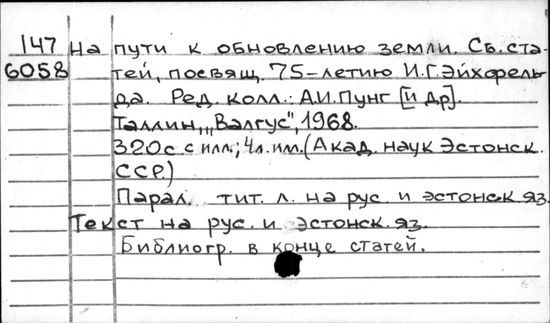 147 На пути к обновлению земли. Сб. ста-
6058 тей, посвящ. 75-летию И.Г. Эйхфель-
да. Ред. колл.: А.И. Пунг [и др].
Таллин, "Валгус", 1968.
320с. с илл.; 4л. илл. (Акад. наук Эстонск.
ССР.)
Парал. тит. л. на рус. и эстонск. яз.
Текст на рус. и эстонск. яз.
Библиогр. в конце статей.